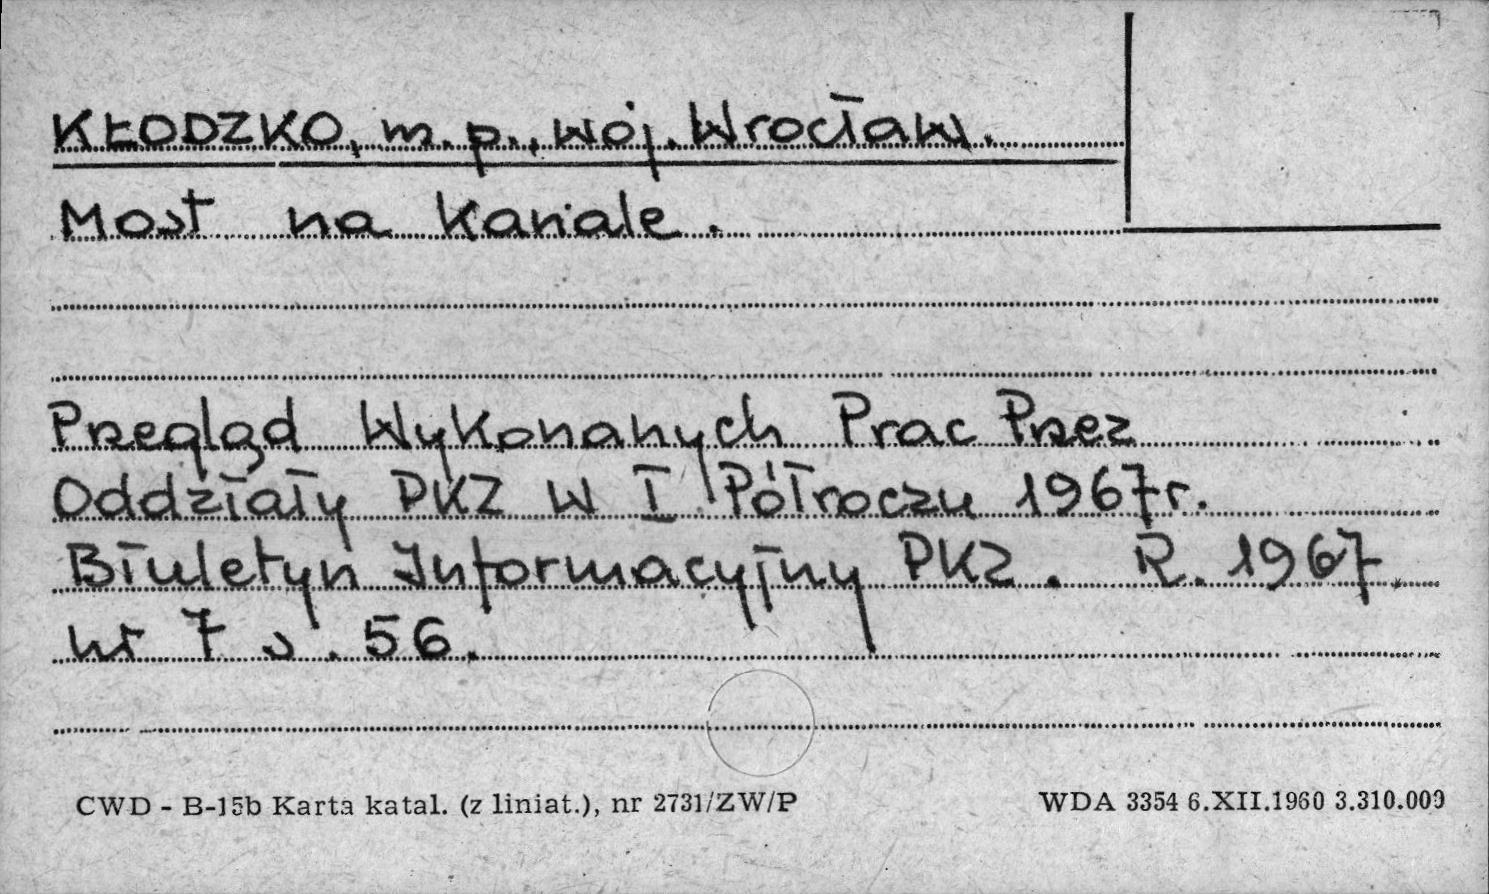 KŁODZKO, m.p., woj. Wrocław.
Most na Kanale.
Przegląd Wykonanych Prac Przez
Oddziały PKZ w I Półroczu 1967r.
Biuletyn Informacyjny PKZ. R. 1967
nr 7 s. 56.
CWD - B-15b Karta katal. (z liniat.), nr 2731/ZW/P
WDA 3354 6.XII.1960 3.310.000